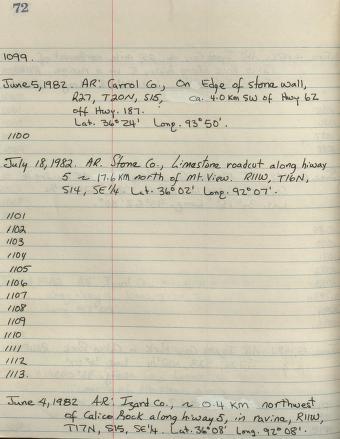 72
1099.
June 5, 1982. AR: Carrol Co., On Edge of stone wall,
R27, T20N, S15, ca. 4.0 km SW of Hwy 62
off Hwy. 187.
Lat. 36°24' Long. 93°50'.
1100
July 18, 1982. AR. Stone Co., Limestone roadcut along hiway
5 ~ 17.6 km north of Mt. View. R11W, T16N,
S14, SE¼. Lat. 36°02' Long. 92°07'.
1101
1102
1103
1104
1105
1106
1107
1108
1109
1110
1111
1112
1113.
June 4, 1982 AR: Izard Co., ~ 0.4 km northwest
of Calico Rock along hiway 5, in ravine, R11W,
T17N, S15, SE¼. Lat. 36°08' Long. 92°08'.